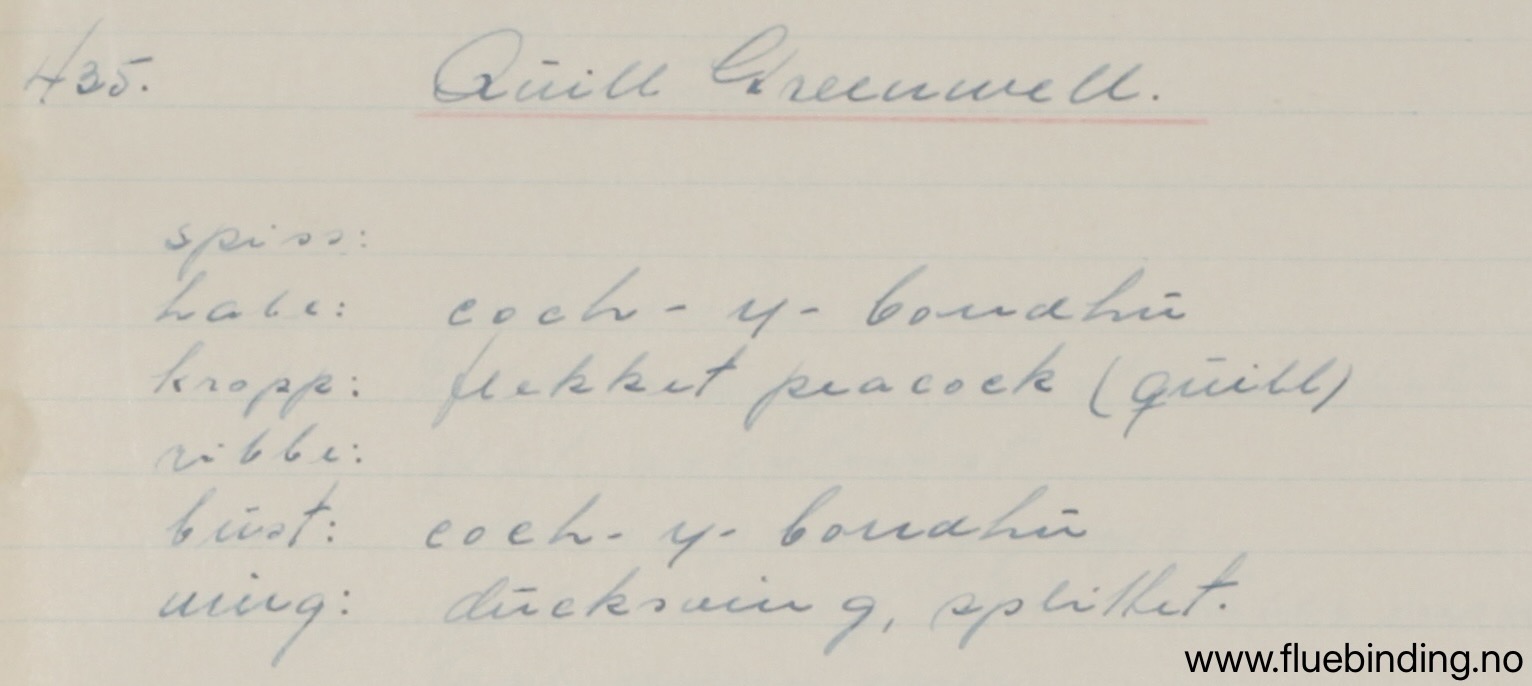 435. Quill Greenwell.
spiss:
hale: coch-y-bondhu
kropp: flekket peacock (quill)
ribbe:
bust: coch-y-bondhu
ving: duckswing, splittet.
www.fluebinding.no